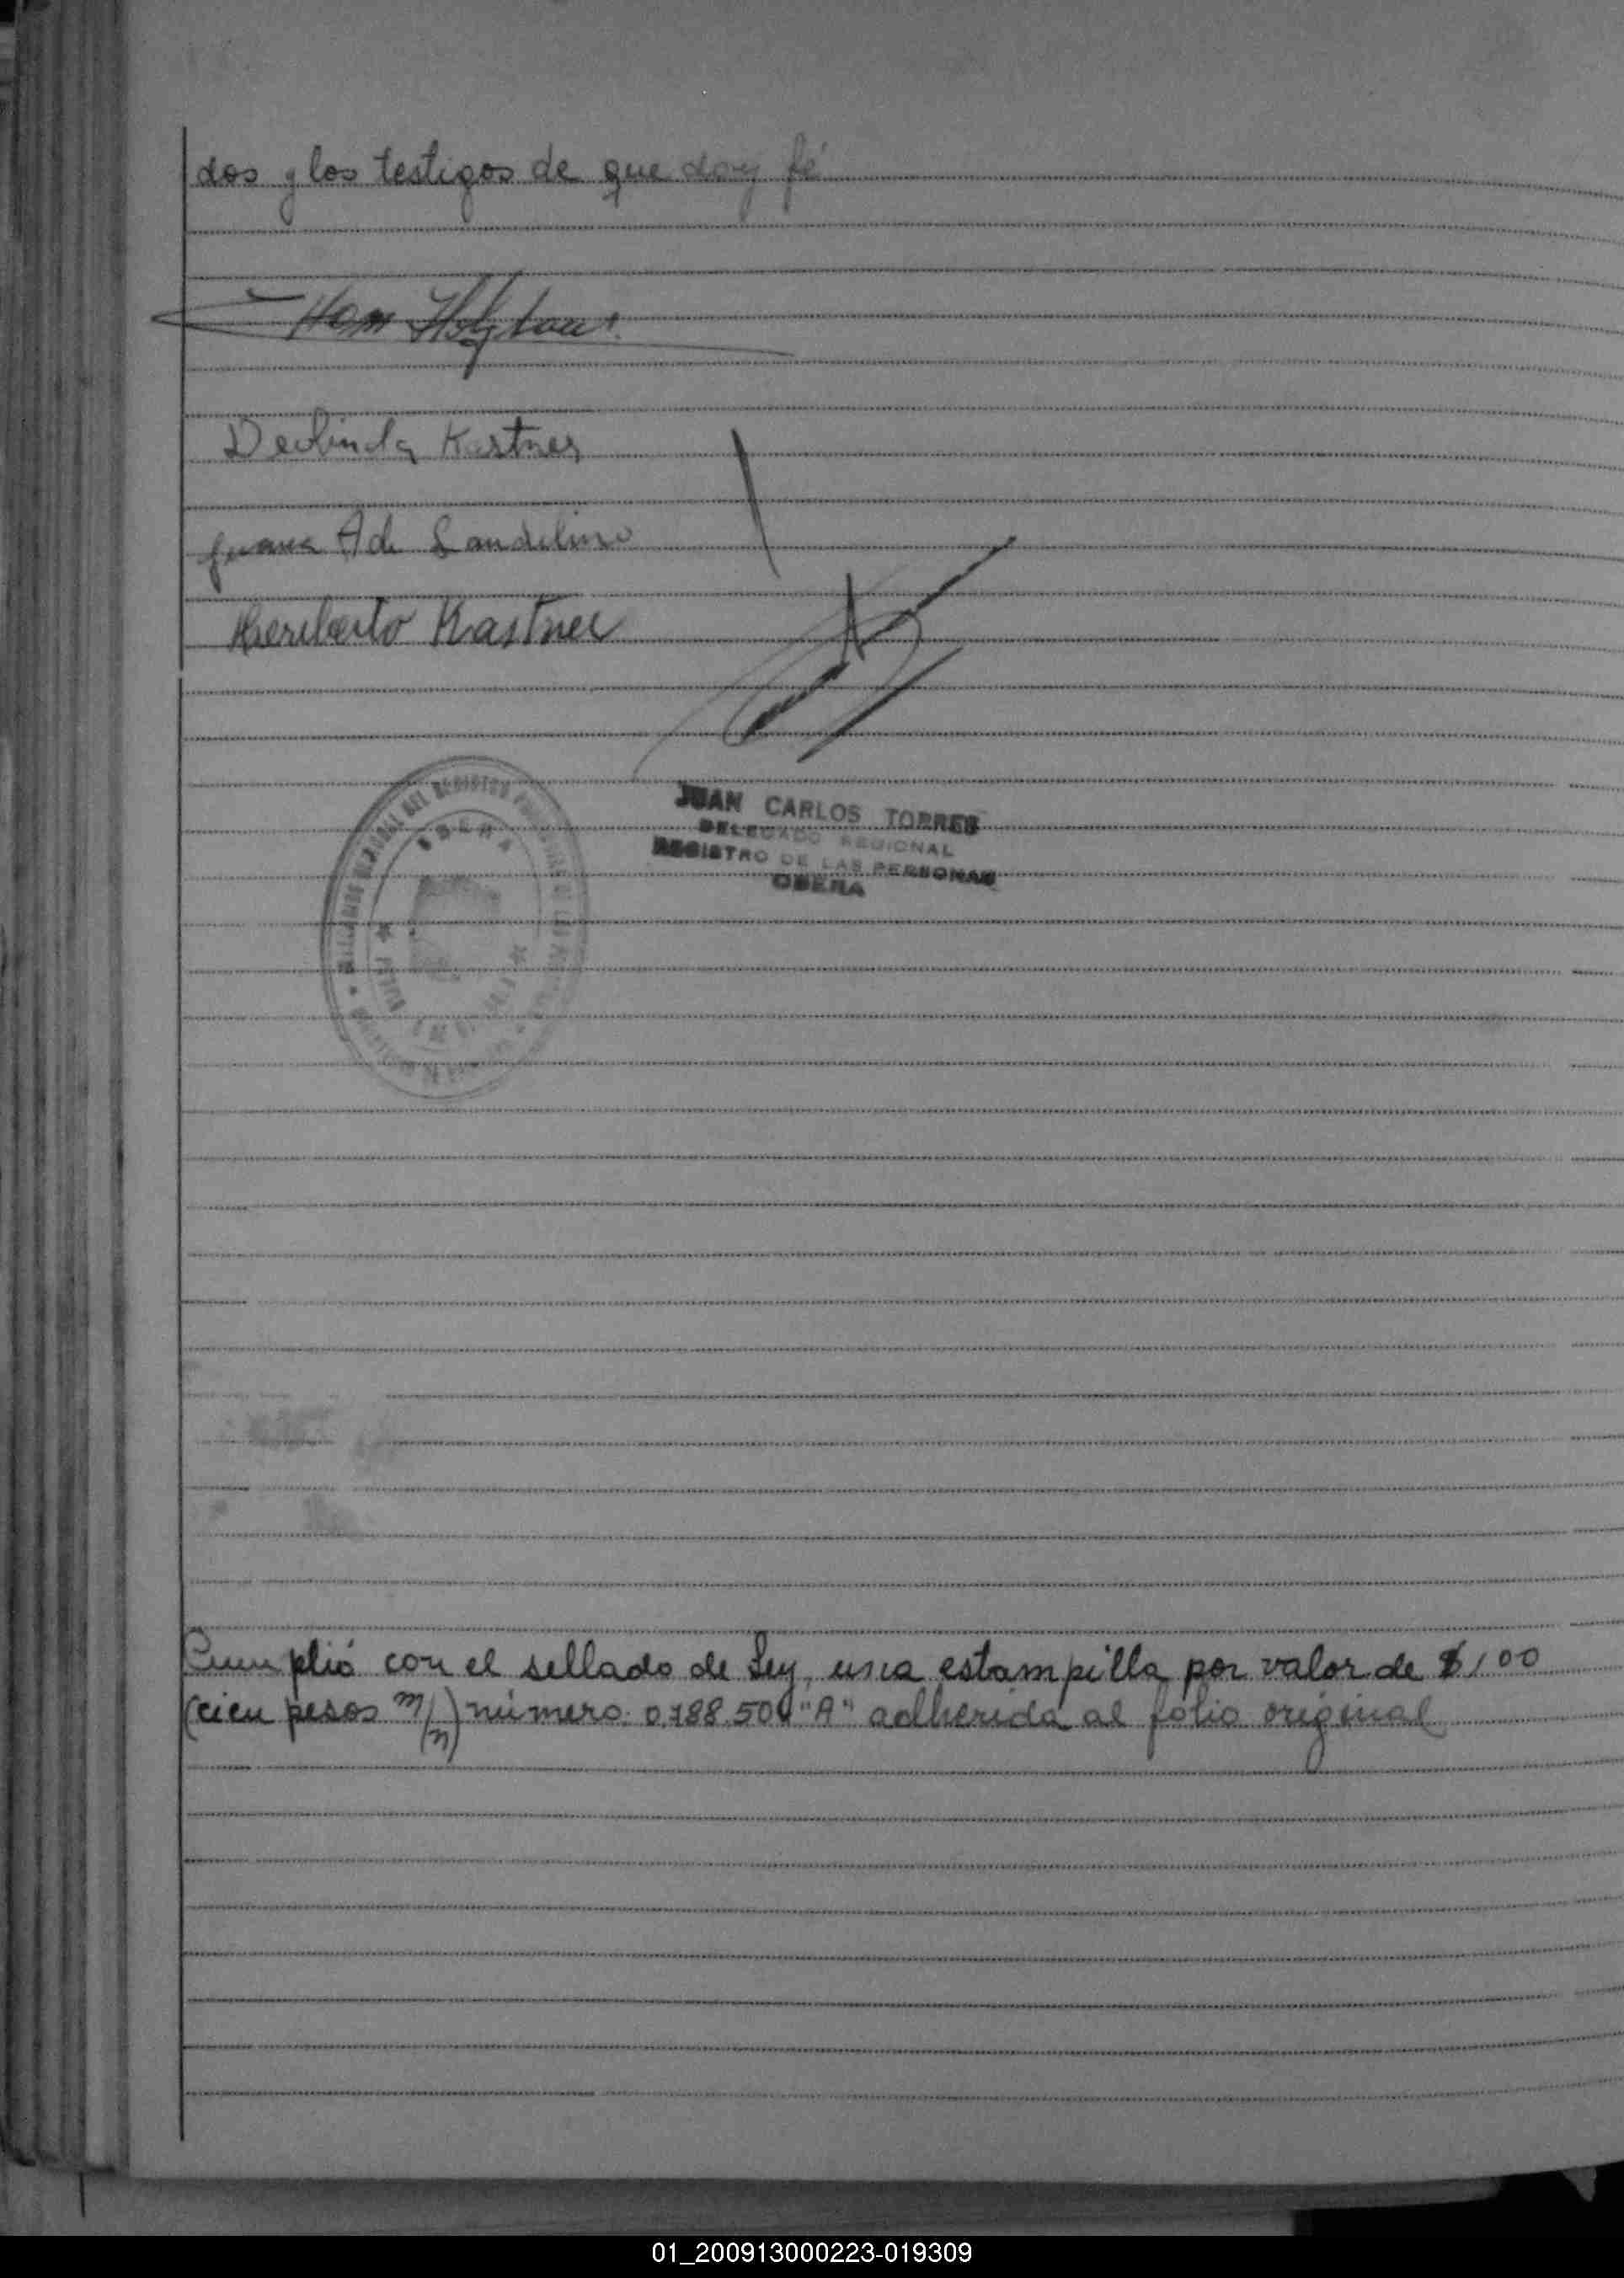 dos y los testigos de que doy fé
Deolinda Kastner
Juana A de Sandelino
Heriberto Kastner
JUAN CARLOS TORRES
DELEGADO REGIONAL
REGISTRO DE LAS PERSONAS
OBERA
OBERA
Cumplió con el sellado de Ley, una estampilla por valor de $100
(cien pesos m/n) número: "A" adherida al folio original
01_200913000223-019309